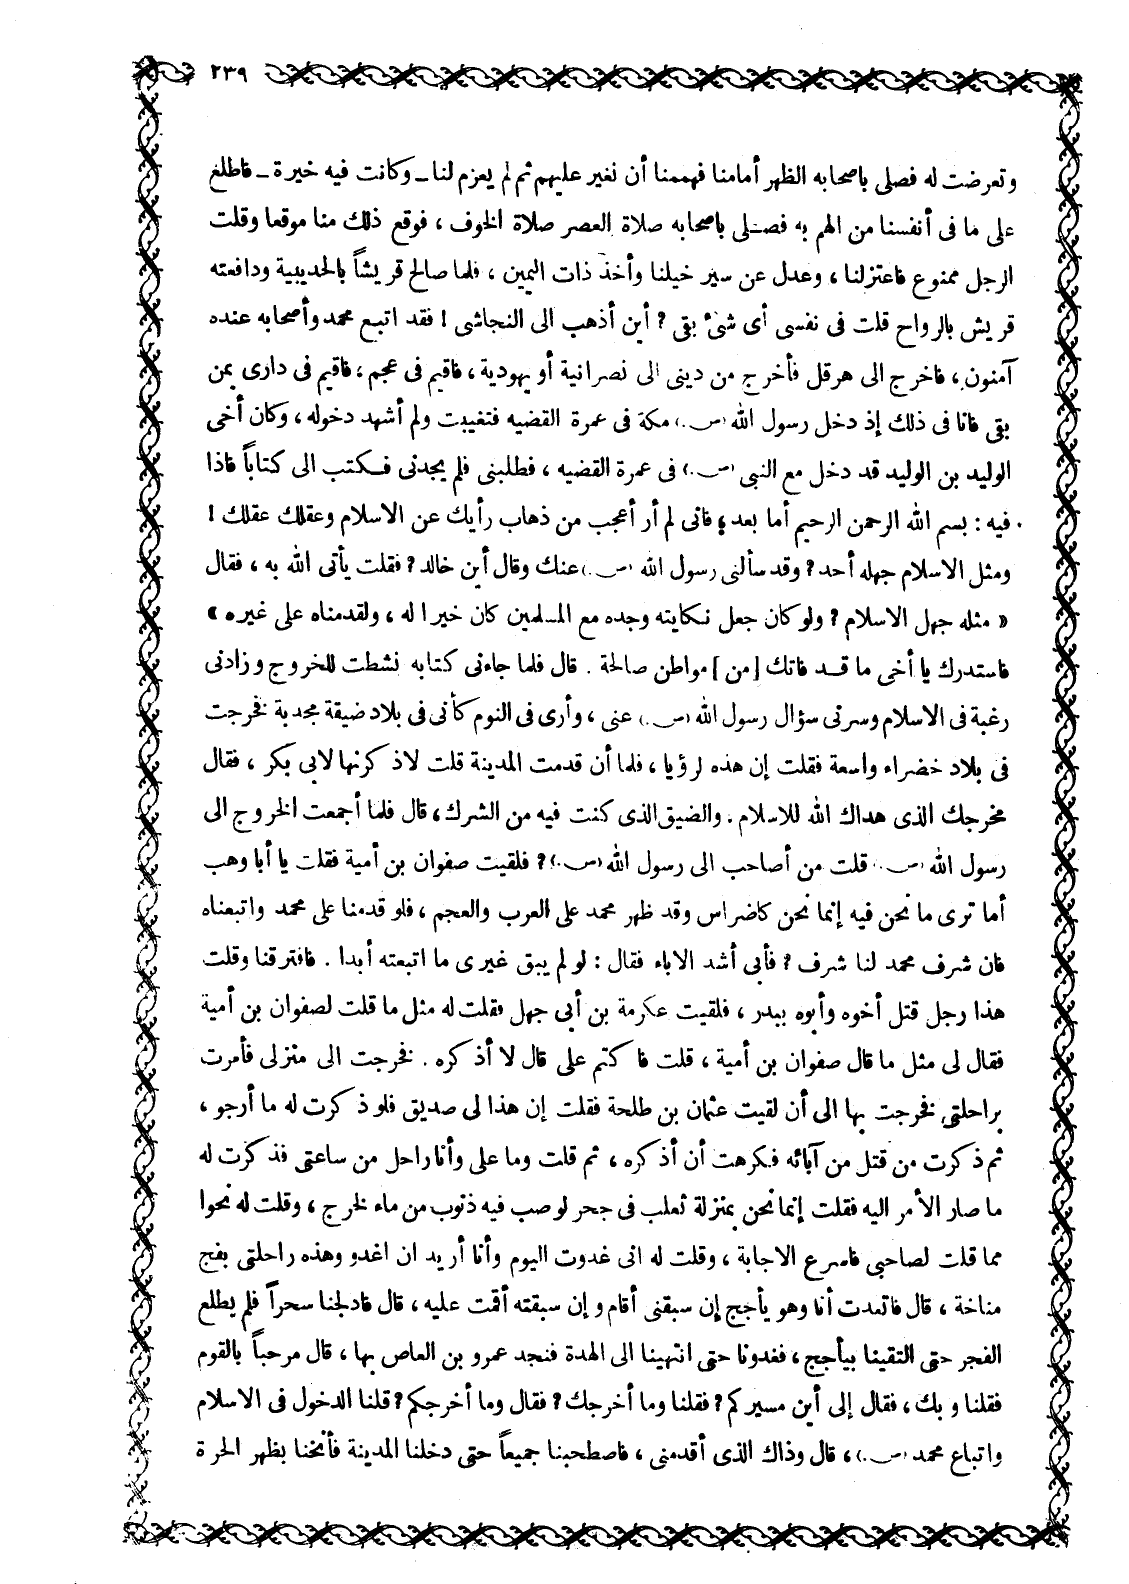 ٢٣٩
وتعرضت له فصلى باصحابه الظهر أمامنا فهممنا أن نغير عليهم ثم لم يعزم لنا ــ وكانت فيه خيرة ــ فاطلع
على ما فى أنفسنا من الهم به فصلى باصحابه صلاة العصر صلاة الخوف ، فوقع ذلك منا موقعا وقلت
الرجل ممنوع فاعتزلنا ، وعدل عن سير خيلنا وأخذ ذات اليمين ، فلما صالح قريشاً بالحديبية ودافعته
قريش بالرواح قلت فى نفسى أى شىء بقى ? أين أذهب الى النجاشى ! فقد اتبع محمد وأصحابه عنده
آمنون ، فاخرج الى هرقل فأخرج من دينى الى نصرانية أو يهودية ، فاقيم فى عجم ، فاقيم فى دارى بمن
بقى فانا فى ذلك إذ دخل رسول الله (ص.) مكة فى عمرة القضيه فتغيبت ولم أشهد دخوله ، وكان أخى
الوليد بن الوليد قد دخل مع النبى (ص.) فى عمرة القضيه ، فطلبنى فلم يجدنى فكتب الى كتاباً فاذا
فيه : بسم الله الرحمن الرحيم أما بعد ؛ فانى لم أر أعجب من ذهاب رأيك عن الاسلام وعقلك عقلك !
ومثل الاسلام جهله أحد ? وقد سألنى رسول الله (ص.) عنك وقال أين خالد ? فقلت يأتى الله به ، فقال
« مثله جهل الاسلام ? ولو كان جعل نكايته وجده مع المسلمين كان خيرا له ، ولقدمناه على غيره »
فاستدرك يا أخى ما قد فاتك [ من ] مواطن صالحة . قال فلما جاءنى كتابه نشطت للخروج وزادنى
رغبة فى الاسلام وسرنى سؤال رسول الله (ص.) عنى ، وأرى فى النوم كأنى فى بلاد ضيقة مجدبة فخرجت
فى بلاد خضراء واسعة فقلت إن هذه لرؤيا ، فلما أن قدمت المدينة قلت لاذكرنها لابى بكر ، فقال
مخرجك الذى هداك الله للاسلام . والضيق الذى كنت فيه من الشرك ، قال فلما أجمعت الخروج الى
رسول الله (ص.) قلت من أصاحب الى رسول الله (ص.) ? فلقيت صفوان بن أمية فقلت يا أبا وهب
أما ترى ما نحن فيه إنما نحن كاضراس وقد ظهر محمد على العرب والعجم ، فلو قدمنا على محمد واتبعناه
فان شرف محمد لنا شرف ? فأبى أشد الاباء فقال : لو لم يبق غيرى ما اتبعته أبدا . فافترقنا وقلت
هذا رجل قتل أخوه وأبوه ببدر ، فلقيت عكرمة بن أبى جهل فقلت له مثل ما قلت لصفوان بن أمية
فقال لى مثل ما قال صفوان بن أمية ، قلت فاكتم على قال لا أذكره . فخرجت الى منزلى فأمرت
براحلتى فخرجت بها الى أن لقيت عثمان بن طلحة فقلت إن هذا لى صديق فلو ذكرت له ما أرجو ،
ثم ذكرت من قتل من آبائه فكرهت أن أذكره ، ثم قلت وما على وأنا راحل من ساعتى فذكرت له
ما صار الأمر اليه فقلت إنما نحن بمنزلة ثعلب فى جحر لو صب فيه ذنوب من ماء لخرج ، وقلت له نحوا
مما قلت لصاحبى فاسرع الاجابة ، وقلت له انى غدوت اليوم وأنا أريد ان اغدو وهذه راحلتى بفج
مناخة ، قال فاتعدت أنا وهو يأجج إن سبقنى أقام وإن سبقته أقمت عليه ، قال فادلجنا سحراً فلم يطلع
الفجر حتى التقينا بيأجج ، فغدونا حتى انتهينا الى الهدة فنجد عمرو بن العاص بها ، قال مرحباً بالقوم
فقلنا وبك ، فقال إلى أين مسيركم ? فقلنا وما أخرجك ? فقال وما أخرجكم ? قلنا الدخول فى الاسلام
واتباع محمد (ص.) ، قال وذاك الذى أقدمنى ، فاصطحبنا جميعاً حتى دخلنا المدينة فأنخنا بظهر الحرة